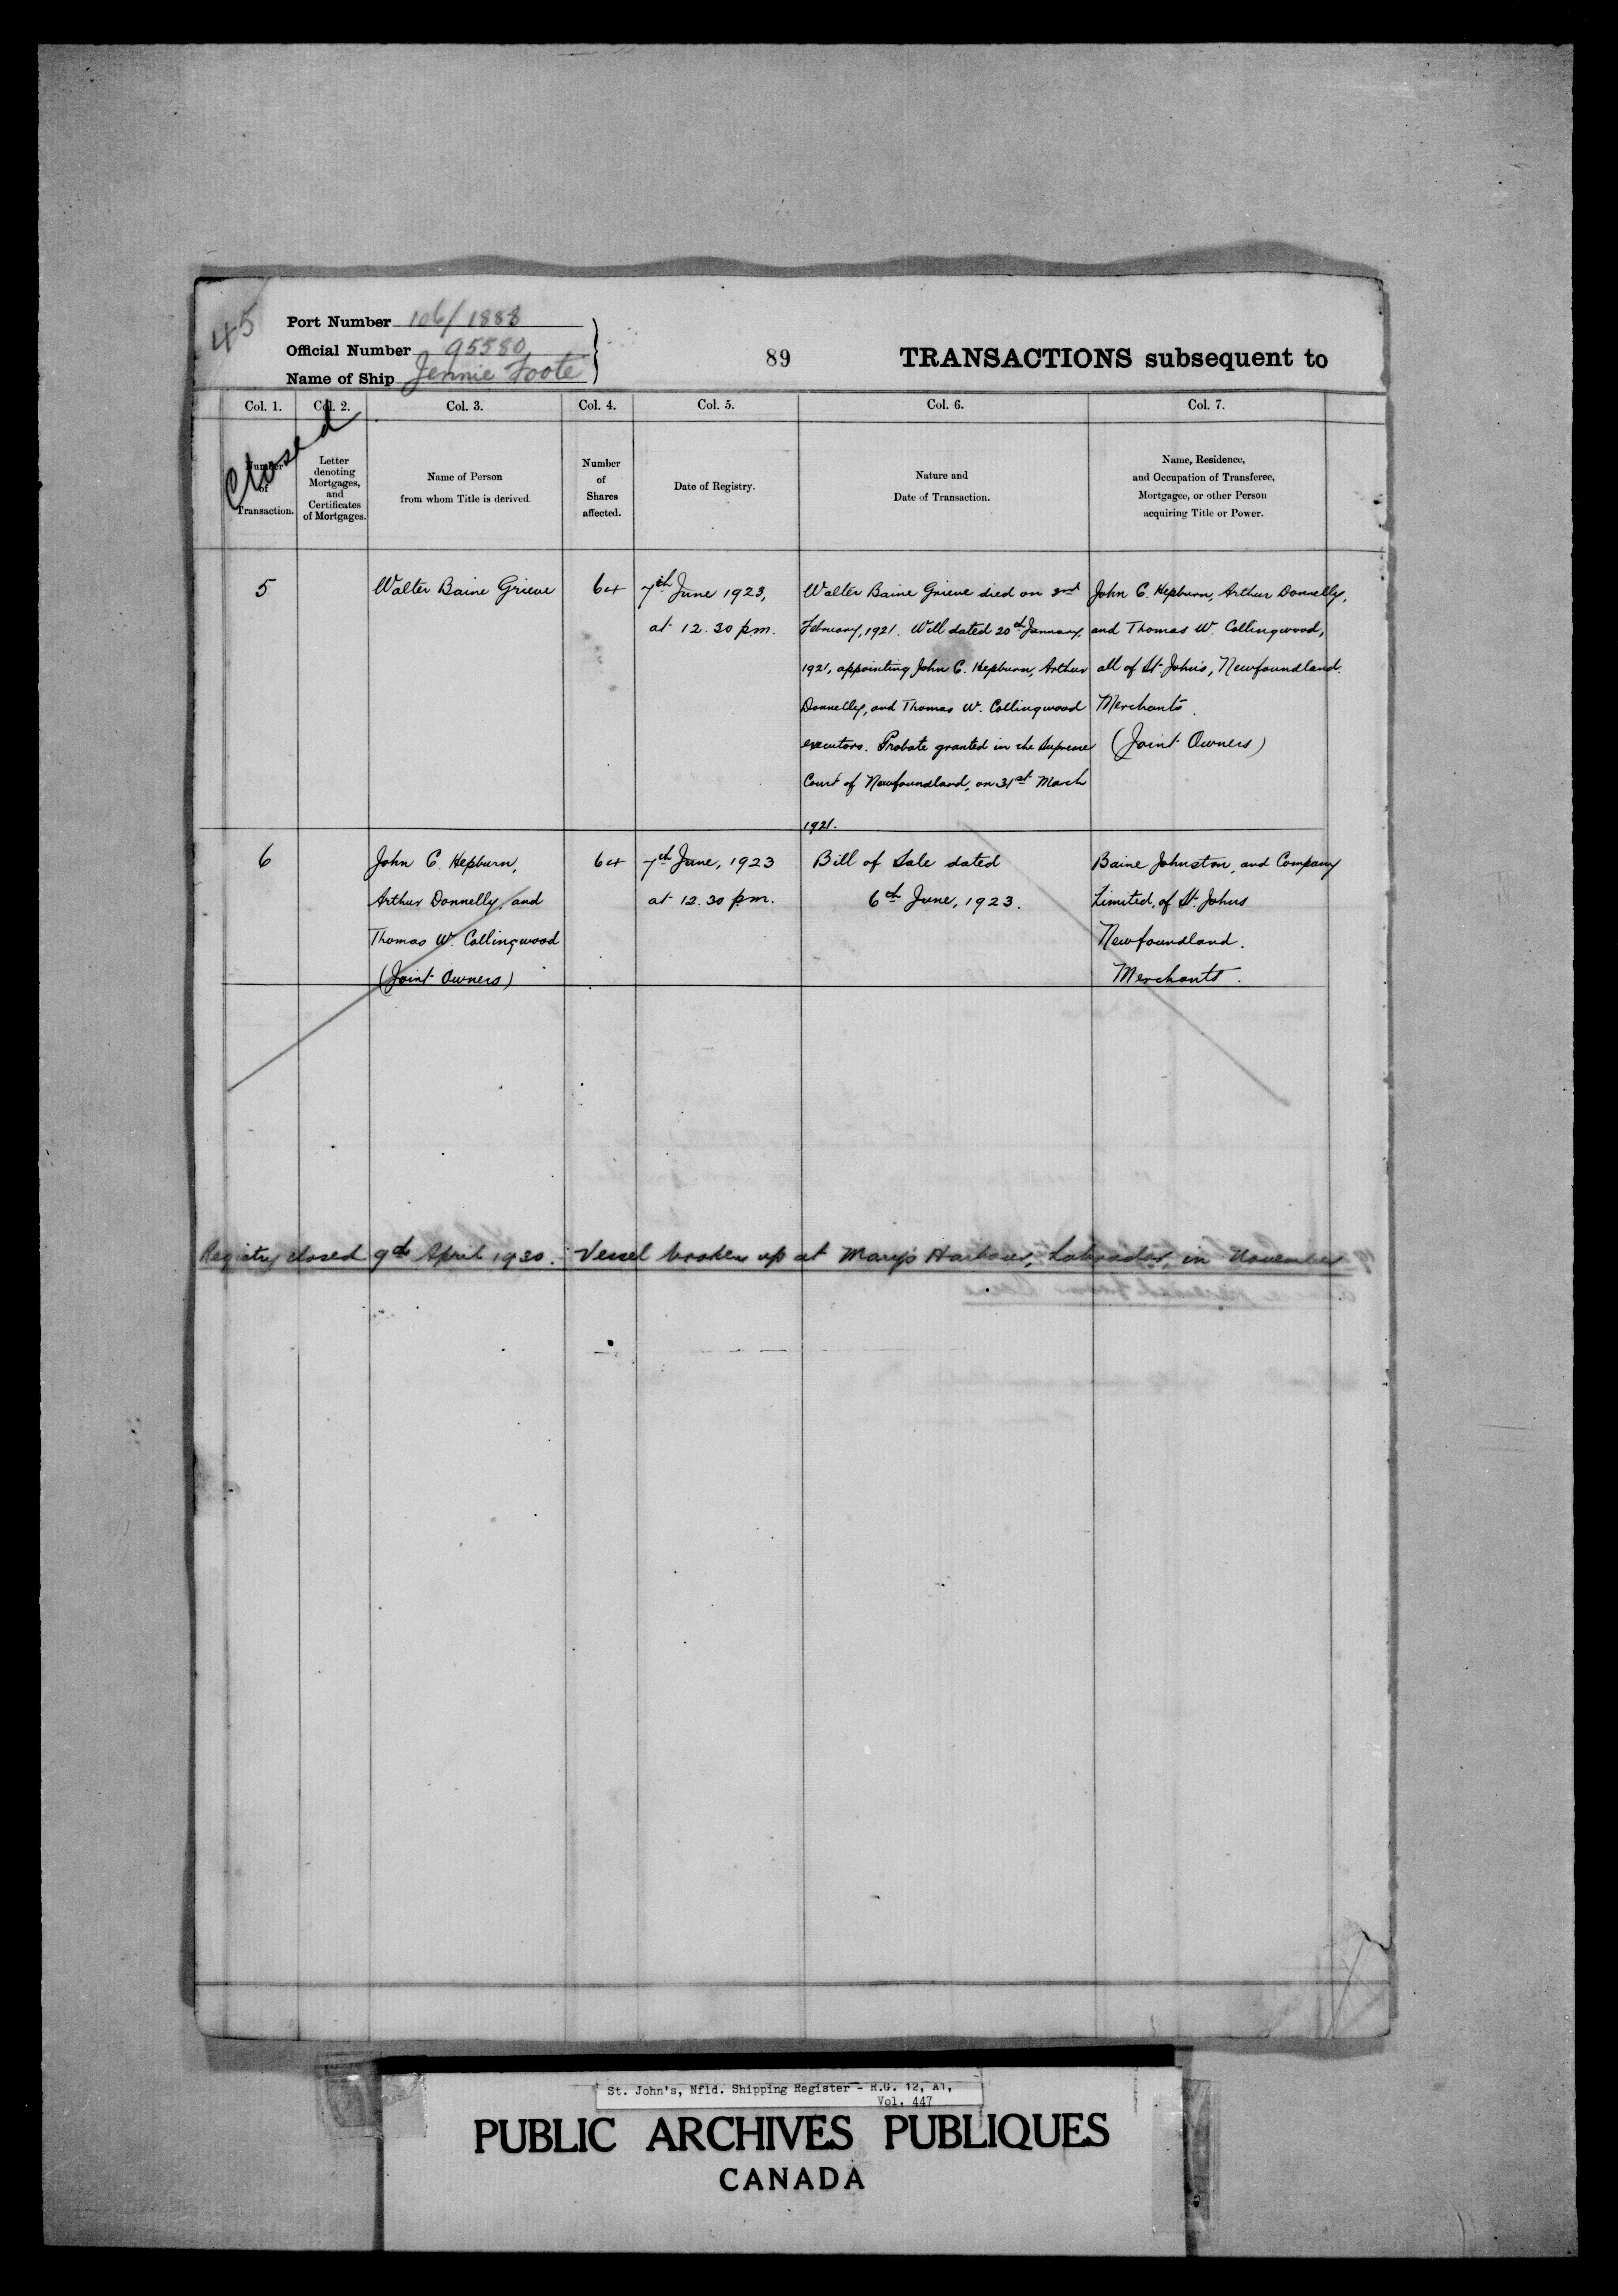 45
Port Number 106/1888
Official Number 95580
Name of Ship Jennie Foote
89
TRANSACTIONS subsequent to
Closed
Col. 1. Col. 2. Col. 3. Col. 4. Col. 5. Col. 6. Col. 7.
Number
of
Transaction.
Letter
denoting
Mortgages,
and
Certificates
of Mortgages.
Name of Person
from whom Title is derived.
Number
of
Shares
affected.
Date of Registry.
Nature and
Date of Transaction.
Name, Residence,
and Occupation of Transferee,
Mortgagee, or other Person
acquiring Title or Power.
5
Walter Baine Grieve
64
7th June 1923,
at 12.30 pm.
Walter Baine Grieve died on
February, 1921. Will dated 20th January,
1921, appointing John C. Hepburn, Arthur
Donnelly, and Thomas W. Collingwood
executors. Probate granted in the Supreme
Court of Newfoundland, on 31st March
1921.
John C. Hepburn, Arthur Donnelly,
and Thomas W. Collingwood,
all of St. John's, Newfoundland.
Merchants.
(Joint Owners)
6
John C. Hepburn,
Arthur Donnelly, and
Thomas W. Collingwood
(Joint Owners)
64
7th June, 1923
at 12.30 pm.
Bill of Sale dated
6th June, 1923.
Baine Johnston, and Company
Limited, of St. Johns
Newfoundland.
Merchants.
Registry closed 9th April 1930. Vessel broken up at Mary's Harbour, Labrador, in November
St. John's, Nfld. Shipping Register - R.G. 12, A1,
Vol. 447
PUBLIC ARCHIVES PUBLIQUES
CANADA